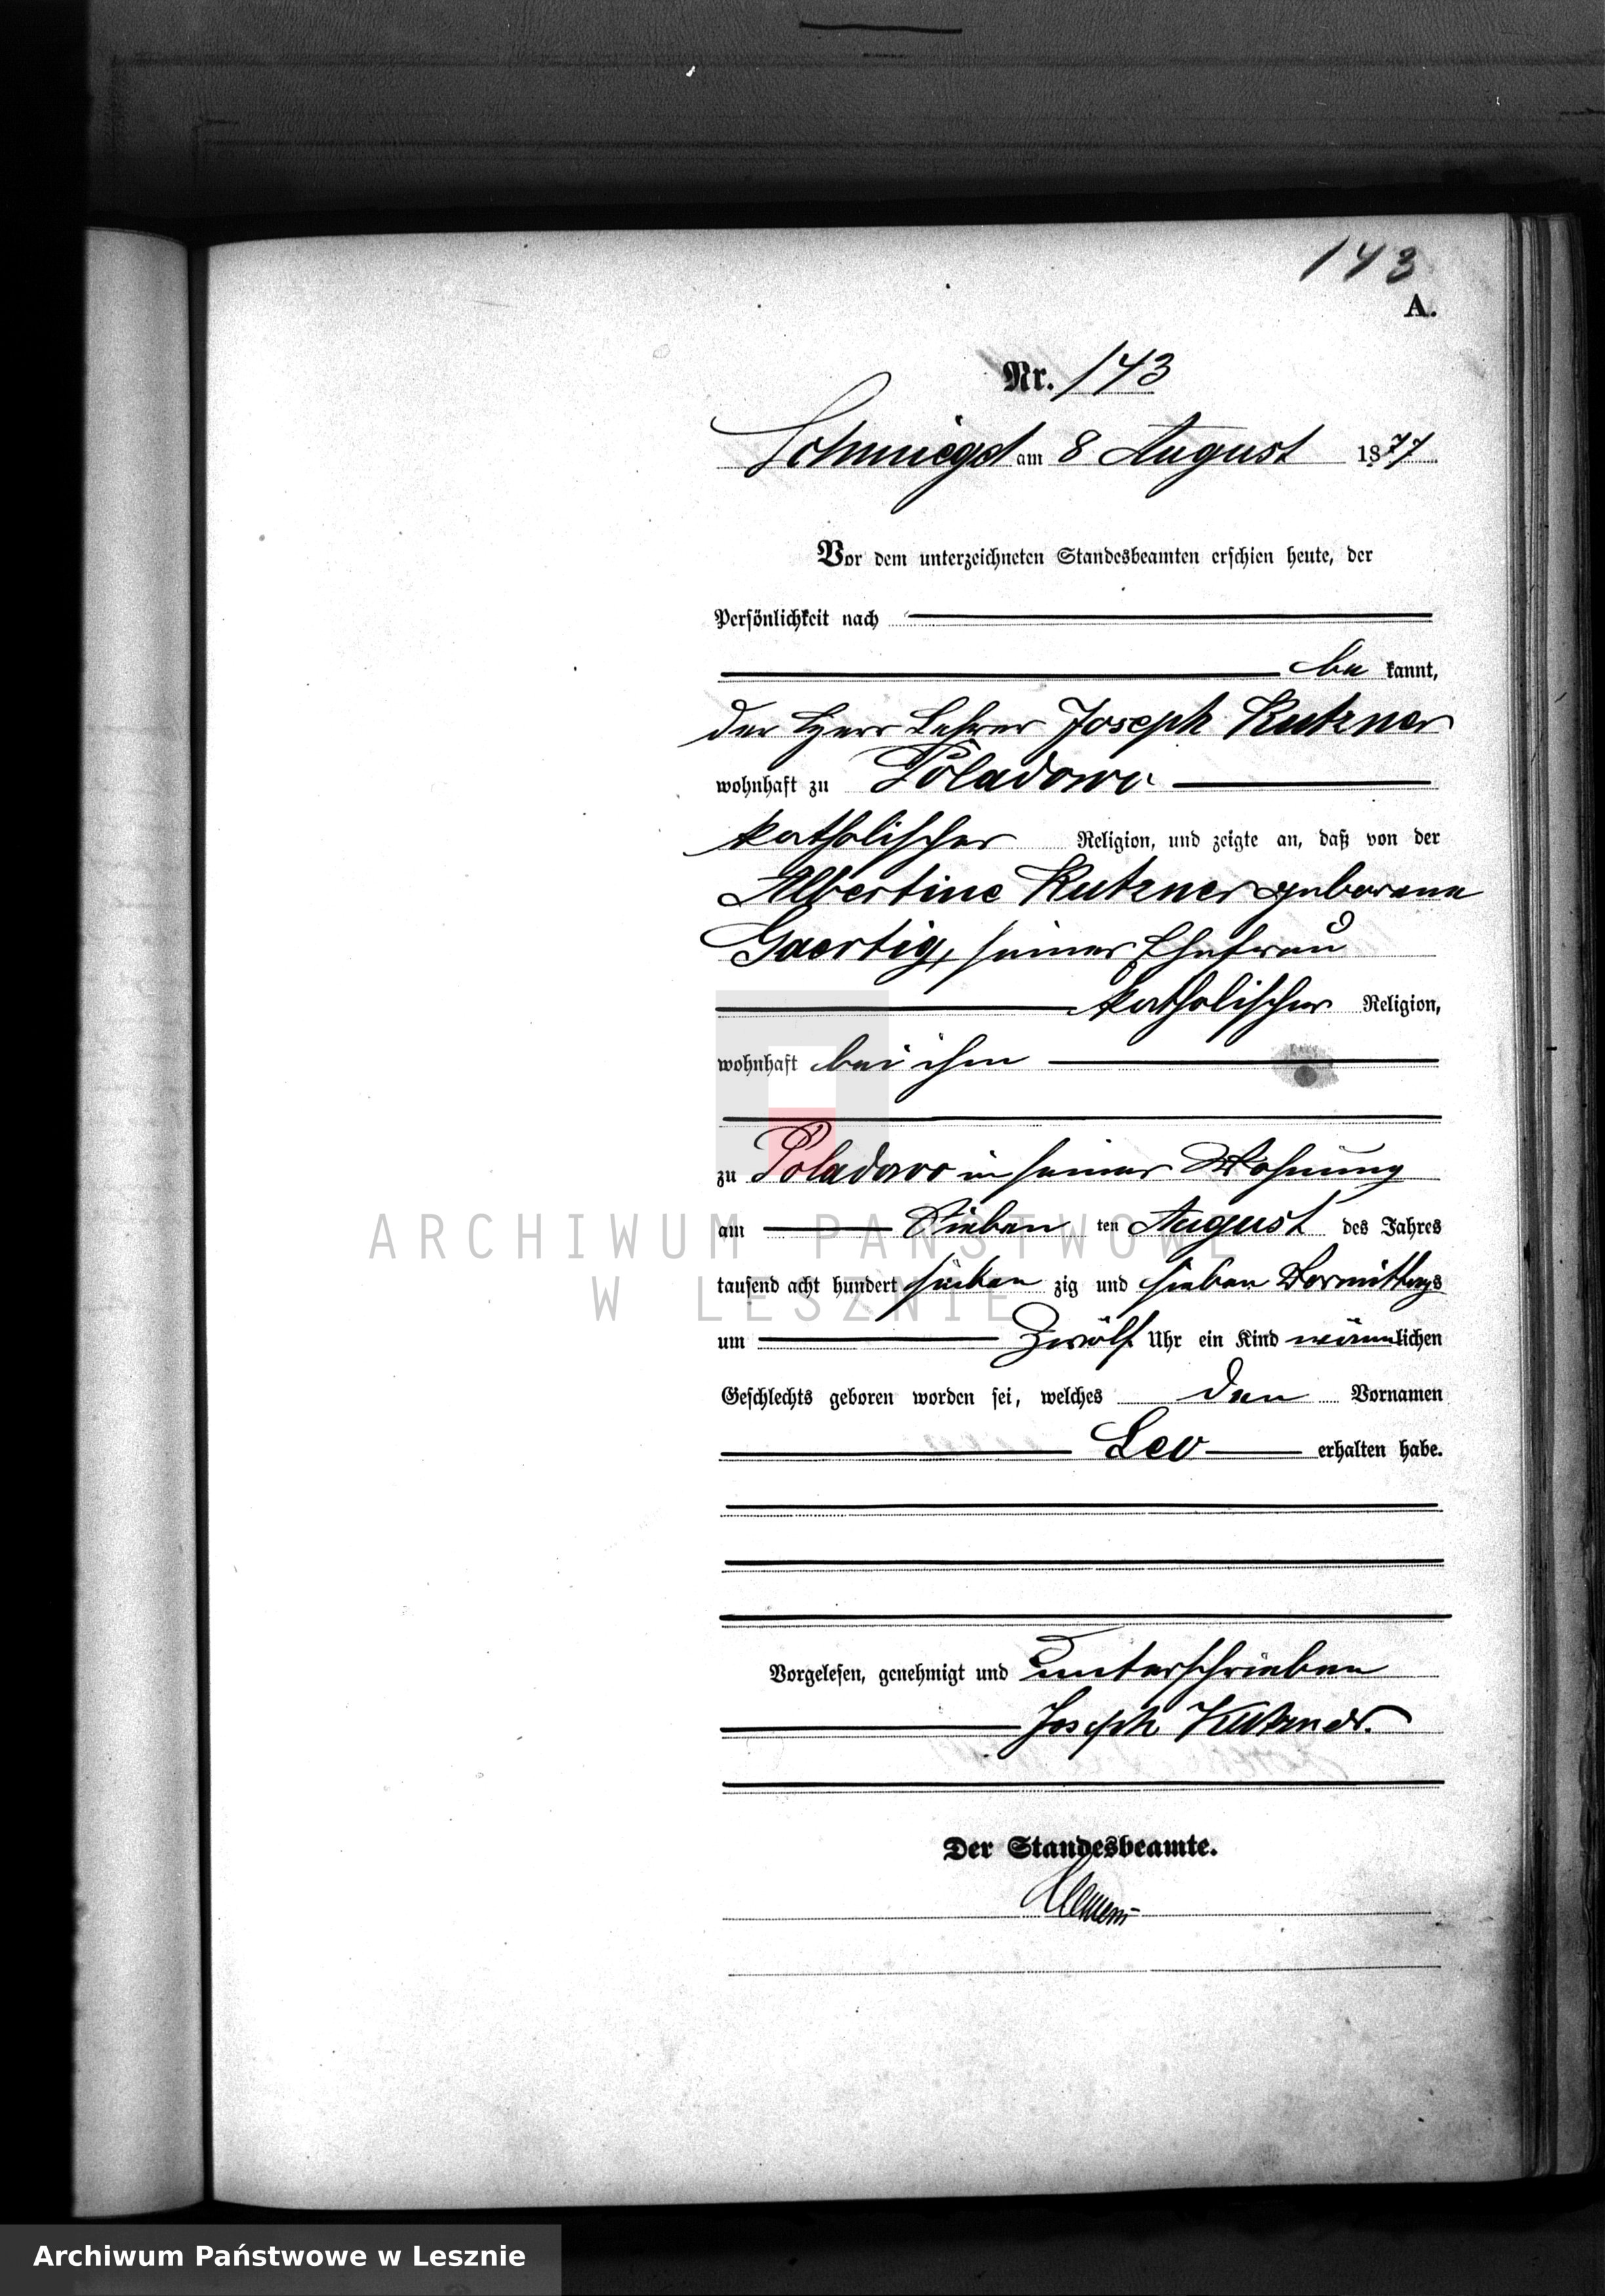 143
A.
Nr. 143
Schmiegel am 8 August 1877
Vor dem unterzeichneten Standesbeamten erschien heute, der
Persönlichkeit nach
be kannt,
der Herr Lehrer Joseph Kutzner
wohnhaft zu Poladowo
katholischer Religion, und zeigte an, daß von der
Albertine Kutzner geborene
Gaertig, seiner Ehefrau
katholischer Religion,
wohnhaft bei ihm
zu Poladowo in seiner Wohnung
am Sieben ten August des Jahres
tausend acht hundert sieben zig und sieben Vormittags
um Zwölf Uhr ein Kind männlichen
Geschlechts geboren worden sei, welches den Vornamen
Leo erhalten habe.
Vorgelesen, genehmigt und unterschrieben
Joseph Kutzner.
Der Standesbeamte.
ARCHIWUM PAŃSTWOWE
W LESZNIE
Archiwum Państwowe w Lesznie